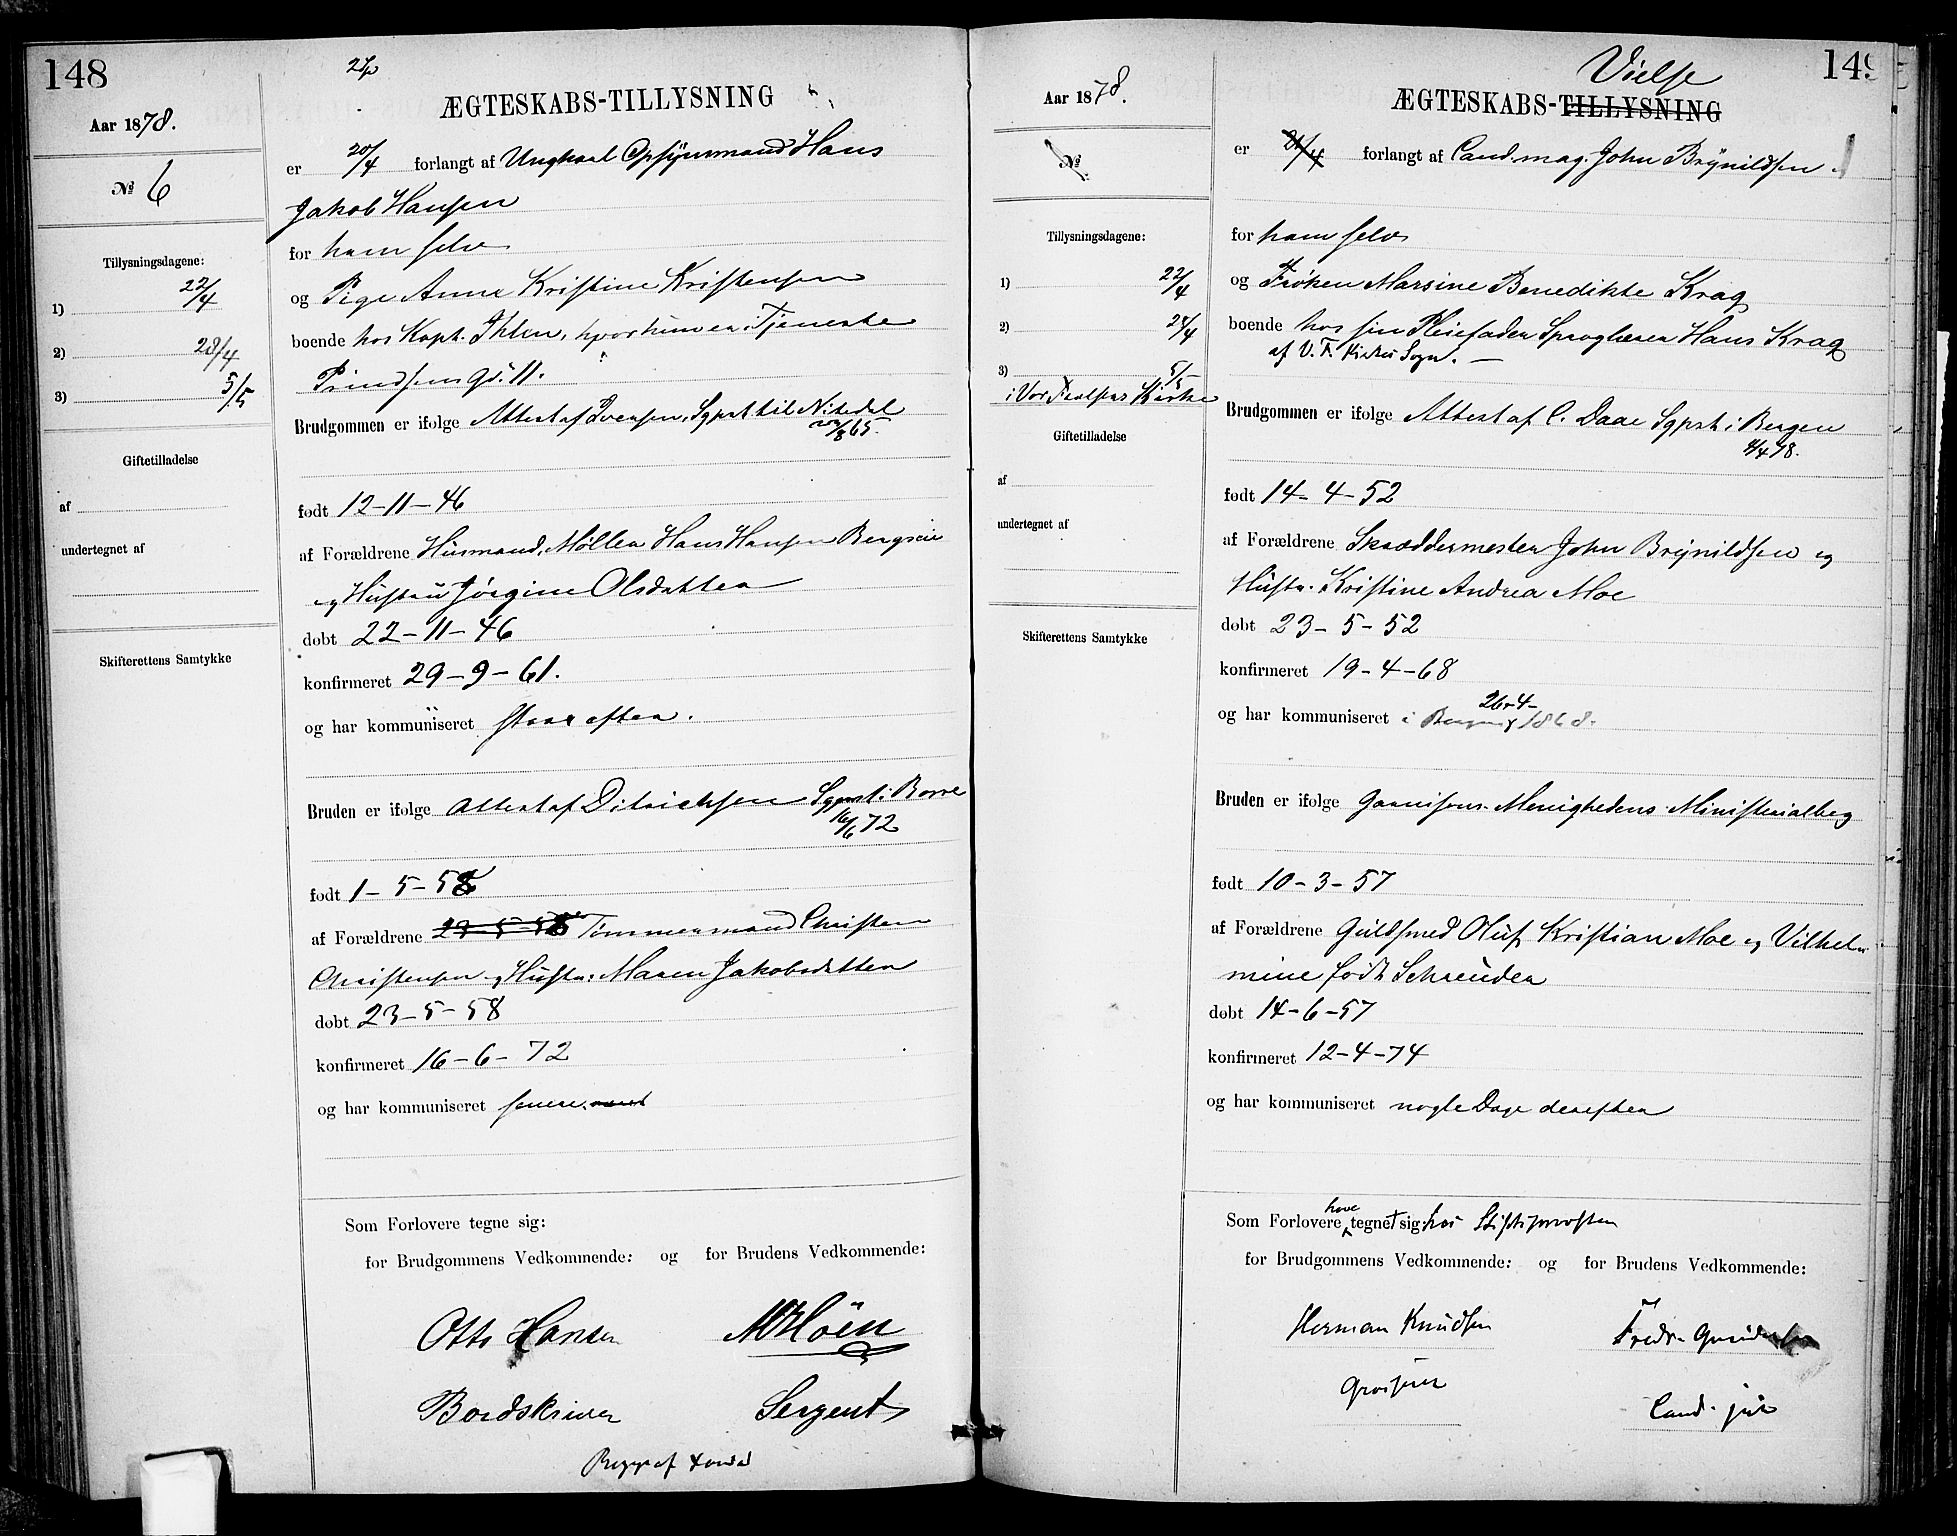 148
Aar 1878.
№ 6
Tillysningsdagene:
1) 22/4
2) 28/4
3) 5/5
Giftetilladelse
af
undertegnet af
Skifterettens Samtykke
ÆGTESKABS-TILLYSNING
er 20/4 forlangt af Ungkarl Opsynsmand Hans
Jakob Hansen
for ham selv
og Pige Anne Kristine Kristensen
boende hos Kapt. Ihlen, hvor hun er i Tjeneste
Prindsens gd. 11.
Brudgommen er ifølge Attest af Ivensen, Sgprst til Nitedal
/8 65.
født 12-11-46
af Forældrene Husmand, Møller Hans Hansen Bergseie
og Hustru Jørgine Olsdatter
døbt 22-11-46
konfirmeret 29-9-61.
og har kommuniseret straxefter.
Bruden er ifølge Attest af Ditrichsen Sgprst i Borre
16/6 72
født 1-5-58
af Forældrene 23-5-58 Tømmermand Christen
Christensen og Hustr. Maren Jakobsdatter
døbt 23-5-58
konfirmeret 16-6-72
og har kommuniseret senere
Som Forlovere tegne sig:
for Brudgommens Vedkommende: og for Brudens Vedkommende:
Otto Hansen M Høen
Bordskriver Sergent
Begge af
149
Aar 1878.
№
Tillysningsdagene:
1) 22/4
2) 28/4
3) 5/5
i Vor Frelsers Kirke
Giftetilladelse
af
undertegnet af
Skifterettens Samtykke
Vielse
ÆGTESKABS-TILLYSNING
er 21/4 forlangt af Cand. mag. John Brynildsen
for ham selv
og Frøken Marsine Benedikte Krag
boende hos sin Pleiefader Sproglærer Hans Krag
af V. F. Kirkes Sogn.
Brudgommen er ifølge Attest af C. Daae Sgprst i Bergen
/4 78.
født 14-4-52
af Forældrene Skræddermester John Brynildsen og
Hustr. Kristine Andrea Moe
døbt 23-5-52
konfirmeret 19-4-68
26-4-
og har kommuniseret i Bergen 1868.
Bruden er ifølge Garnisons-Menighedens Ministerialbog
født 10-3-57
af Forældrene Guldsmed Oluf Kristian Moe og Vilhel-
mine født Schreuder
døbt 14-6-57
konfirmeret 12-4-74
og har kommuniseret nogle Dage derefter
Som Forlovere have tegnet sig hos Stiftsprovsten
for Brudgommens Vedkommende: og for Brudens Vedkommende:
Herman Knudsen Fredr.
Grosserer Cand. jur